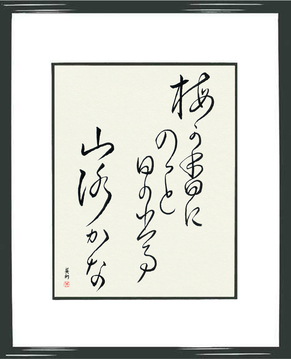 梅か香に
のつと
日の出る
山路かな